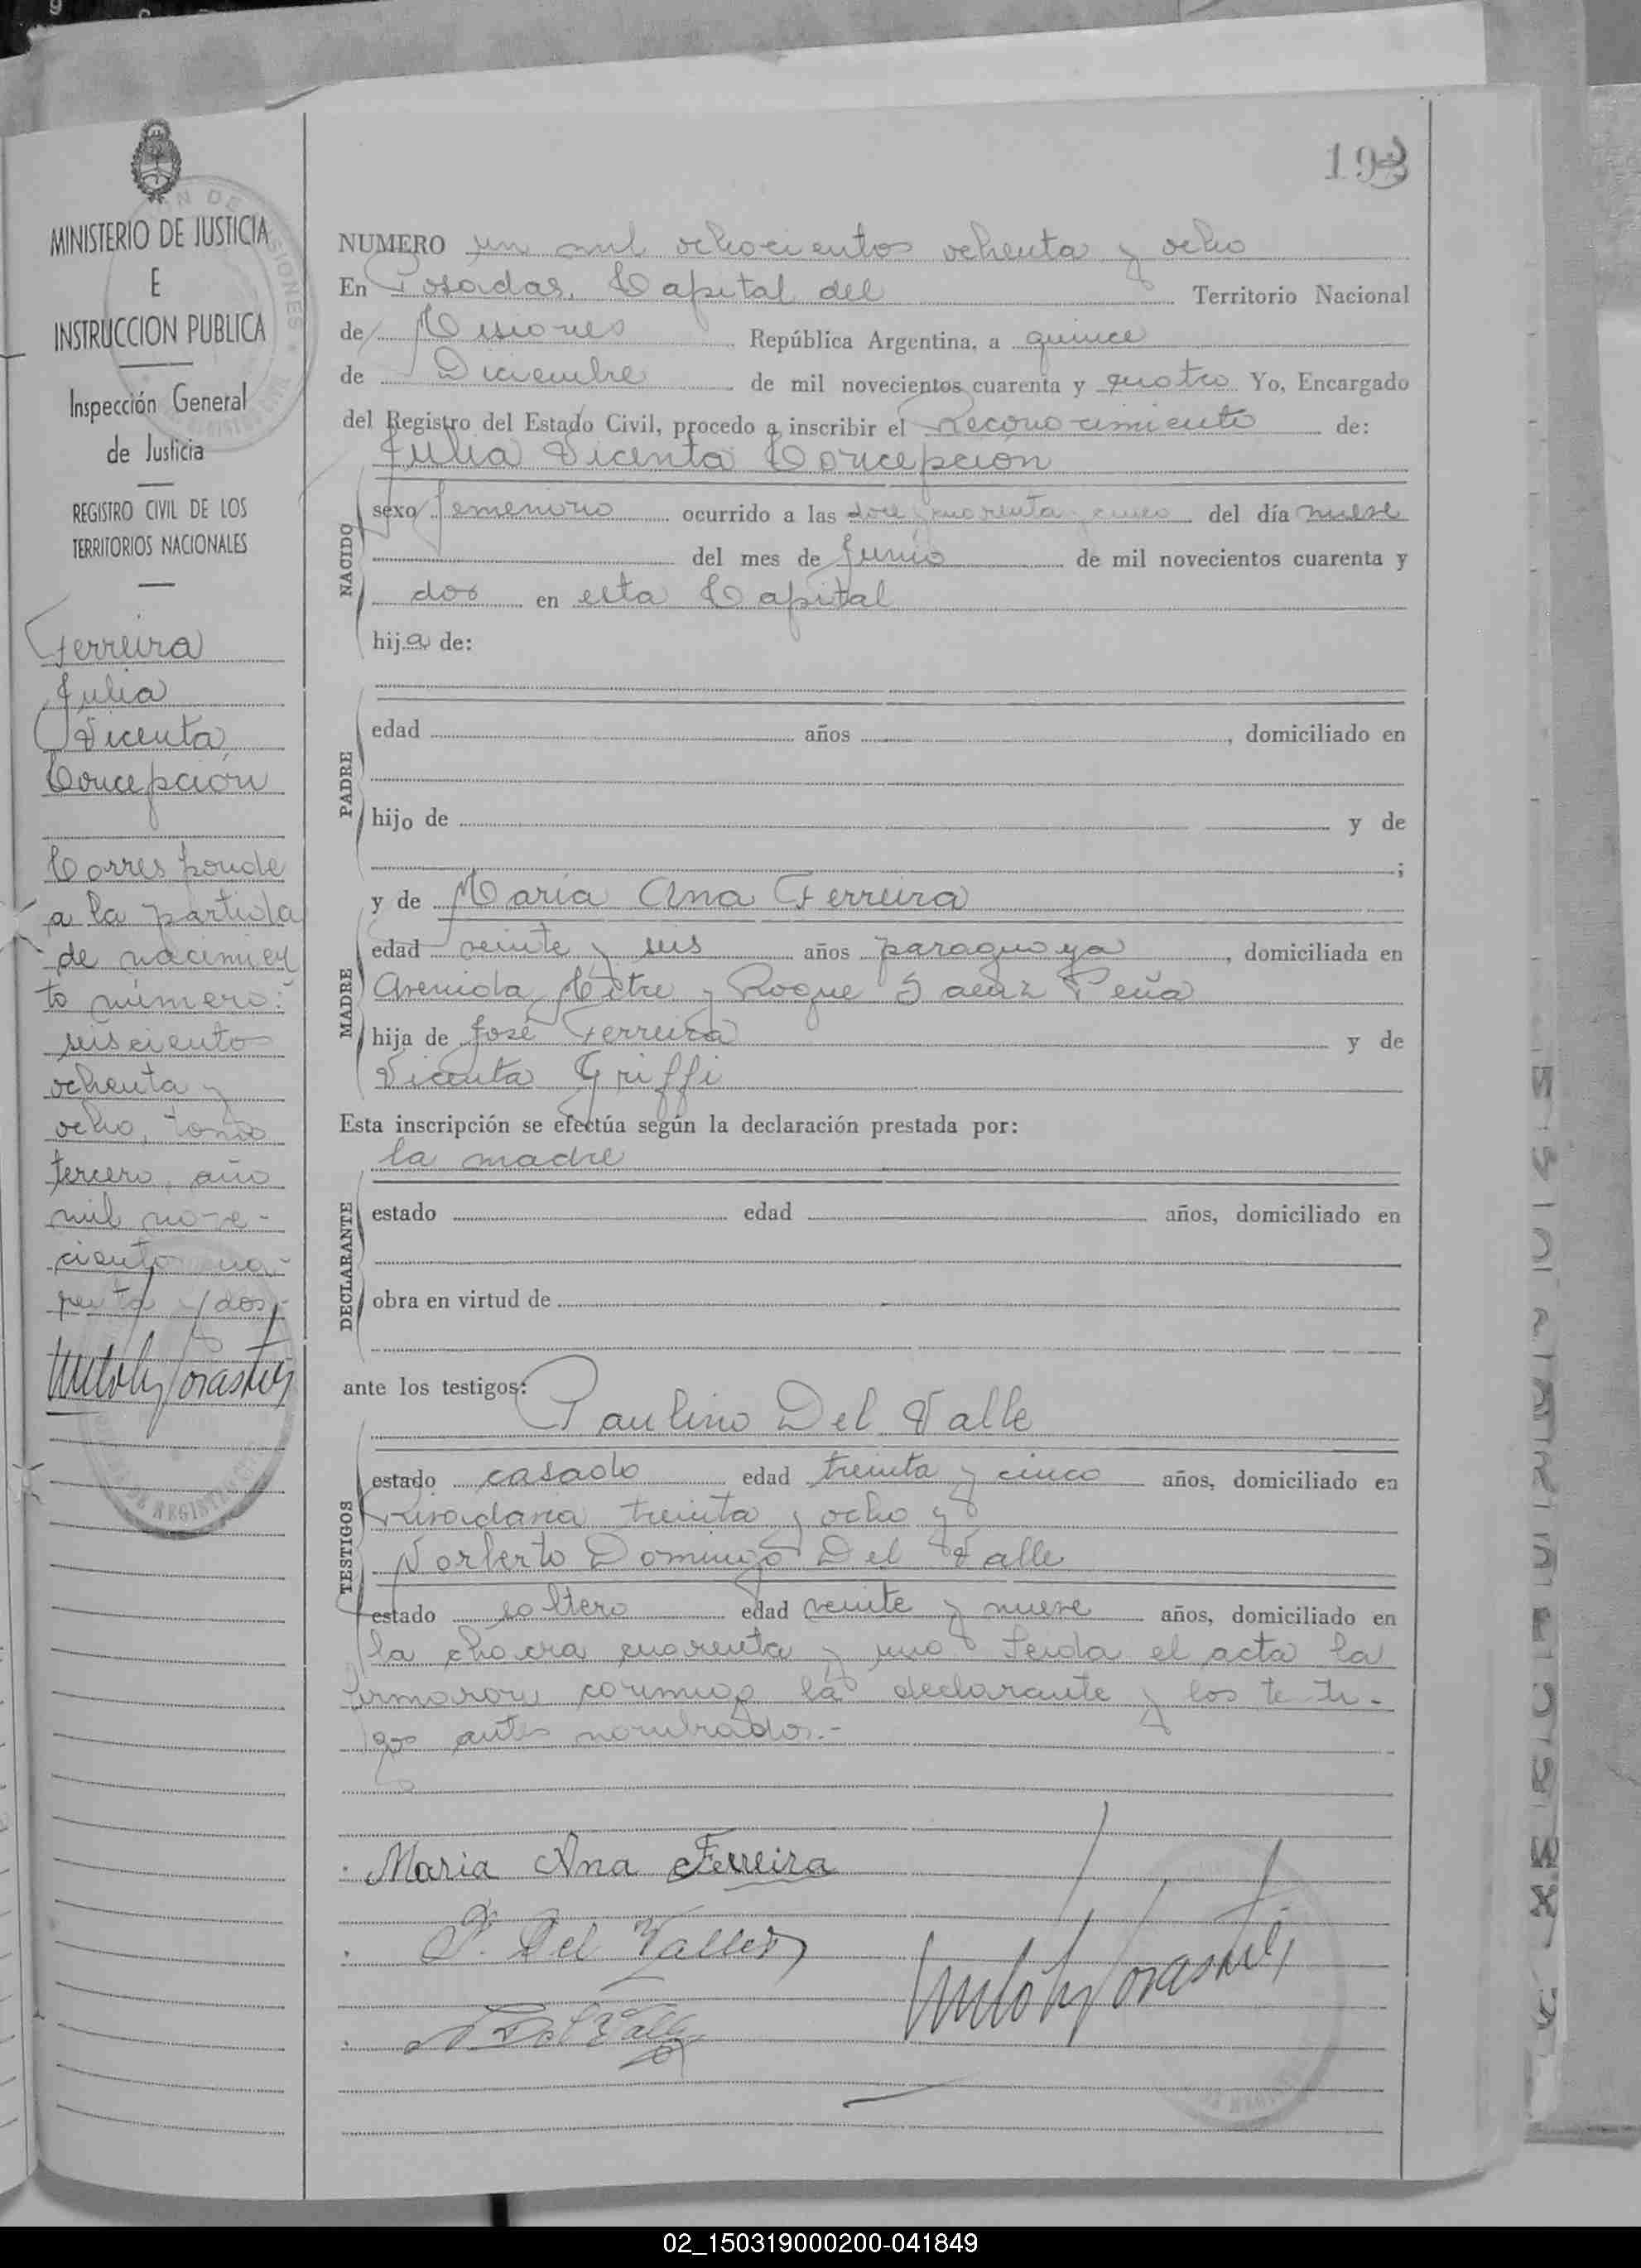 193
MINISTERIO DE JUSTICIA
E
INSTRUCCION PUBLICA
Inspección General
de Justicia
REGISTRO CIVIL DE LOS
TERRITORIOS NACIONALES
Ferreira
Julia
Vicenta
Concepción
Corresponde
a la partida
de nacimien
to número:
seisciento
ochenta y
ocho, tomo
tercero, año
mil nove-
ciento cua-
renta y dos.-
NUMERO un mil ochocientos ochenta y ocho
En Posadas, Capital del Territorio Nacional
de Misiones República Argentina, a quince
de Diciembre de mil novecientos cuarenta y cuatro Yo, Encargado
del Registro del Estado Civil, procedo a inscribir el Reconocimiento de:
Julia Vicenta Concepción
NACIDO
sexo femenino ocurrido a las doce y cuarenta y cinco del día nueve
del mes de Junio de mil novecientos cuarenta y
dos en esta Capital
hija de:
PADRE
edad años , domiciliado en
hijo de y de
;
y de María Ana Ferreira
MADRE
edad veinte y seis años paraguaya , domiciliada en
Avenida Mitre y Roque Saenz Peña
hija de José Ferreira y de
Vicenta Griffi
Esta inscripción se efectúa según la declaración prestada por:
la madre
DECLARANTE
estado edad años, domiciliado en
obra en virtud de
ante los testigos:
Paulino Del Valle
TESTIGOS
estado casado edad treinta y cinco años, domiciliado en
Rivadavia treinta y ocho y
Norberto Domingo Del Valle
estado soltero edad veinte y nueve años, domiciliado en
la chacra cuarenta y uno Leida el acta la
firmaron conmigo la declarante y los testi-
gos antes nombrados.-
Maria Ana Ferreira
P. Del Valle
N Del Valle
02_150319000200-041849